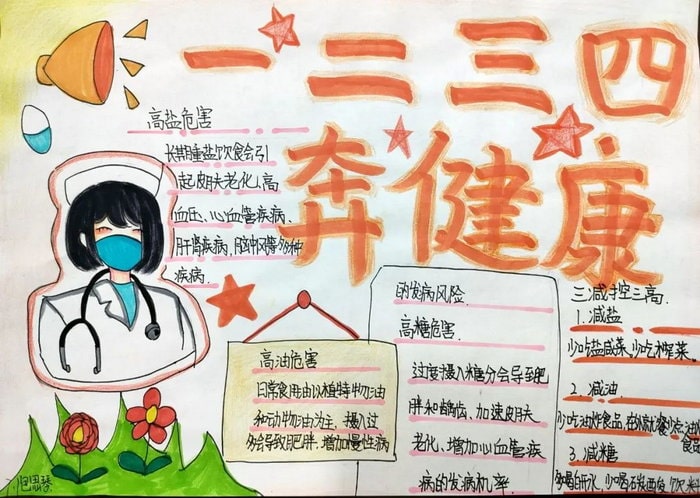 一二三四
奔健康
高盐危害
长期重盐饮食会引
起皮肤老化、高
血压、心血管疾病、
肝肾疾病,脑中风等多种
疾病.
高油危害
日常食用油以植物油
和动物油为主、摄入过
多会导致肥胖、增加慢性病
的发病风险.
高糖危害
过度摄入糖分会导致肥
胖和龋齿、加速皮肤
老化、增加心血管疾
病的发病机率
三减控三高.
1.减盐
少吃盐咸菜、少吃榨菜、
2.减油
少吃油炸食品,在外就餐少点油
食
3.减糖
多喝白开水,少喝碳酸